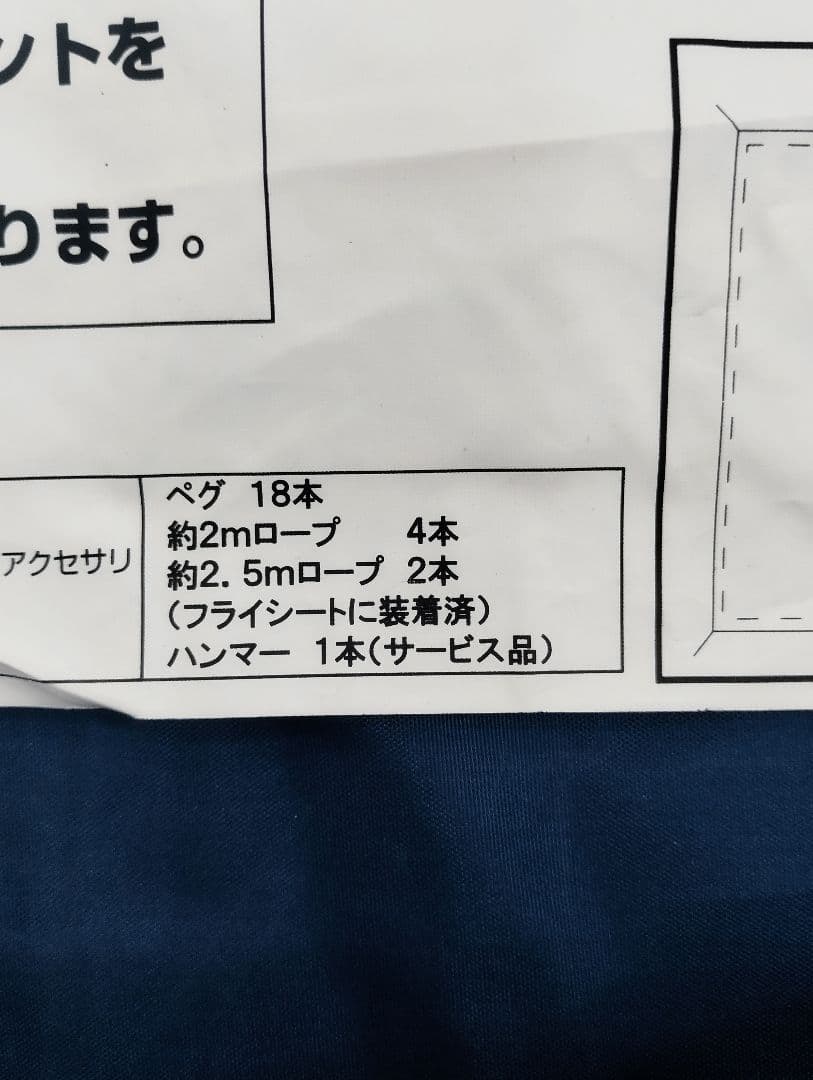 ントを
ります。
アクセサリ
ペグ 18本
約2mロープ 4本
約2.5mロープ 2本
(フライシートに装着済)
ハンマー 1本(サービス品)